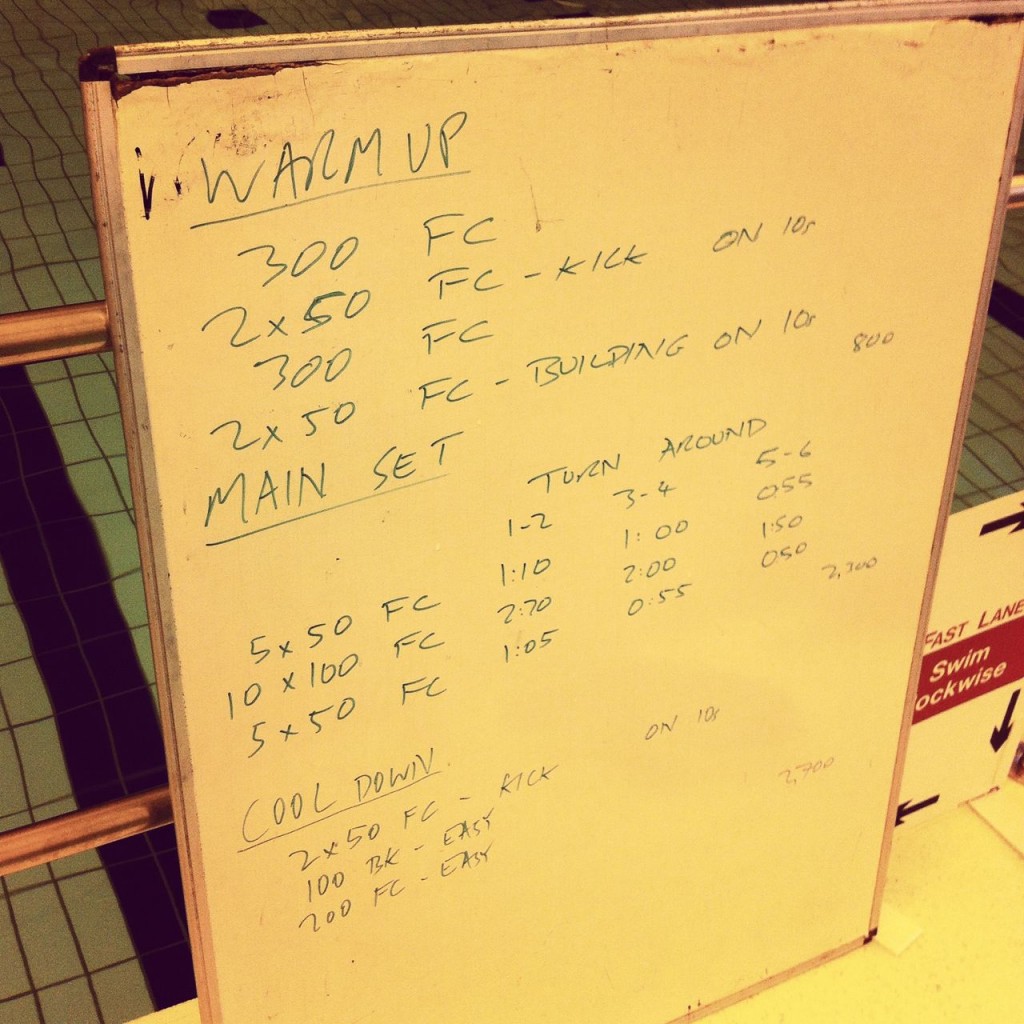 WARM UP
300 FC
2x50 FC - KICK ON 10s
300 FC
2x50 FC - BUILDING ON 10s 800
MAIN SET
TURN AROUND
1-2 3-4 5-6
5x50 FC 1:10 1:00 055
10x100 FC 2:20 2:00 1:50
5x50 FC 1:05 0:55 050
2,300
COOL DOWN
2x50 FC - KICK ON 10s
100 BK - EASY
200 FC - EASY
2,700
FAST LANE
Swim
ockwise